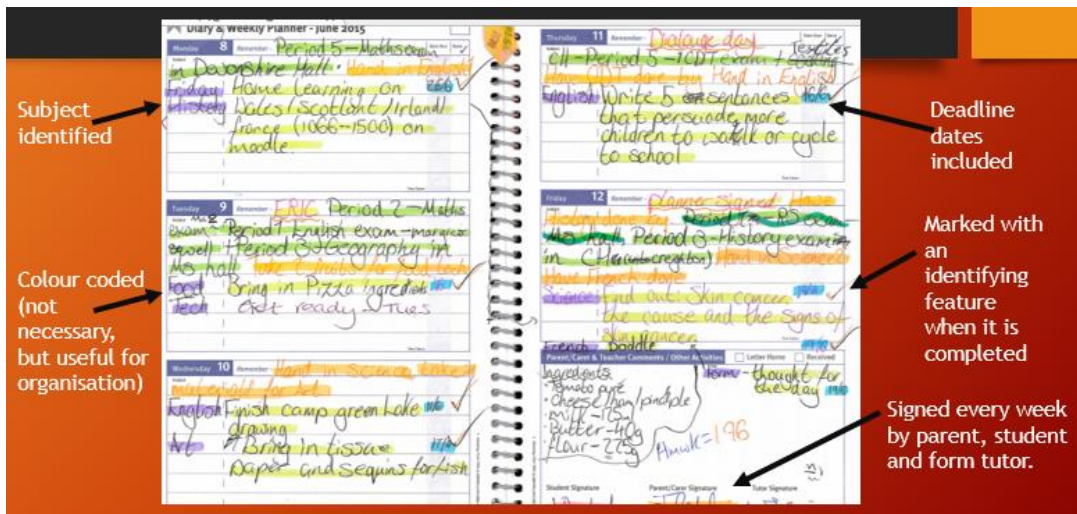 Diary & Weekly Planner - June 2015
Subject
identified
Colour coded
(not
necessary,
but useful for
organisation)
Monday 8 Remember Period 5 - Maths exam
in Devonshire Hall. Hand in English
Friday Home Learning on
History Wales/Scotland/Irland/
france (1066-1500) on
moodle.
Tuesday 9 Remember ERIC Period 2 - Maths
exam - Period 1 English exam -
Period 3 - Geography in
MS hall
Food Bring in Pizza ingredients
Tech Get ready - Tues
Wednesday 10 Remember Hand in science
English Finish camp green lake
drawing
Art Bring in tissue
paper and sequins for fish
Thursday 11 Remember Dialouge day
CH - Period 5 - ICDT exam + Textiles
Have ODT done by Hand in English
English Write 5 sentances
that persuade more
children to walk or cycle
to school
Friday 12 Remember planner signed Have
done by Period 1 - RS exam
MS hall Period 3 - History exam
in CH Hand in Science
Have French done
Science Find out: Skin cancer
the cause and the signs of
skin cancer
French Doddle
Parent/Carer & Teacher Comments / Other Activities Letter Home Received
Ingredients:
• Tomato pure
• cheese/ham/pinaple
• milk - 125g
• Butter - 40g
• flour - 225g
Form - thought for
the day
Hmwk = 196
Student Signature Parent/Carer Signature Tutor Signature
Deadline
dates
included
Marked with
an
identifying
feature
when it is
completed
Signed every week
by parent, student
and form tutor.